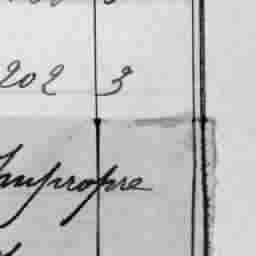 202 3
Impropre